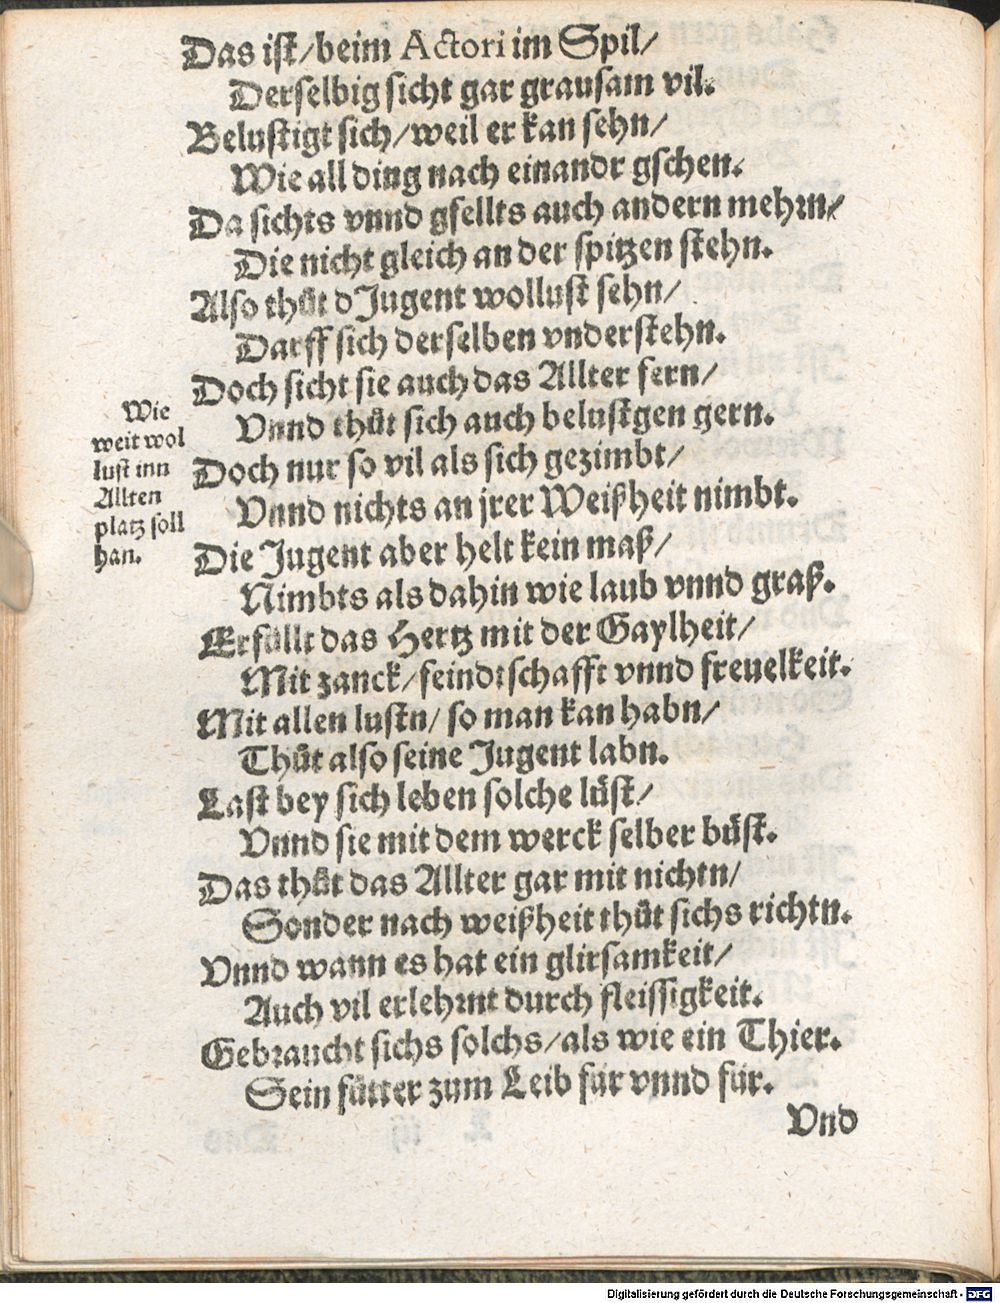 Das ist/beim Actori im Spil/
Derselbig sicht gar grausam vil.
Belustigt sich/weil er kan sehn/
Wie all ding nach einandr gschen.
Da sichts vnnd gfellts auch andern mehrn/
Die nicht gleich an der spitzen stehn.
Also thůt d'Jugent wollust sehn/
Darff sich derselben vnderstehn.
Doch sicht sie auch das Allter fern/
Vnnd thůt sich auch belustgen gern.
Doch nur so vil als sich gezimbt/
Vnnd nichts an jrer Weißheit nimbt.
Die Jugent aber helt kein maß/
Nimbts als dahin wie laub vnnd graß.
Erfüllt das Hertz mit der Gaylheit/
Mit zanck/feindtschafft vnnd freuelkeit.
Mit allen lustn/so man kan habn/
Thůt also seine Jugent labn.
Last bey sich leben solche lüst/
Vnnd sie mit dem werck selber büst.
Das thůt das Allter gar mit nichtn/
Sonder nach weißheit thůt sichs richtn.
Vnnd wann es hat ein glirsamkeit/
Auch vil erlehrnt durch fleissigkeit.
Gebraucht sichs solchs/als wie ein Thier.
Sein fůtter zum Leib für vnnd für.
Vnd
Wie
weit wol
lust inn
Allten
platz soll
han.
Digitalisierung gefördert durch die Deutsche Forschungsgemeinschaft - DFG